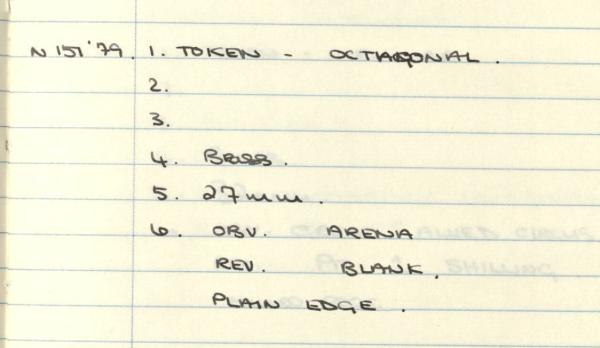 N 151'79. 1. TOKEN - OCTAGONAL.
2.
3.
4. Brass.
5. 27mm.
6. OBV. ARENA
REV. BLANK.
PLAIN EDGE.